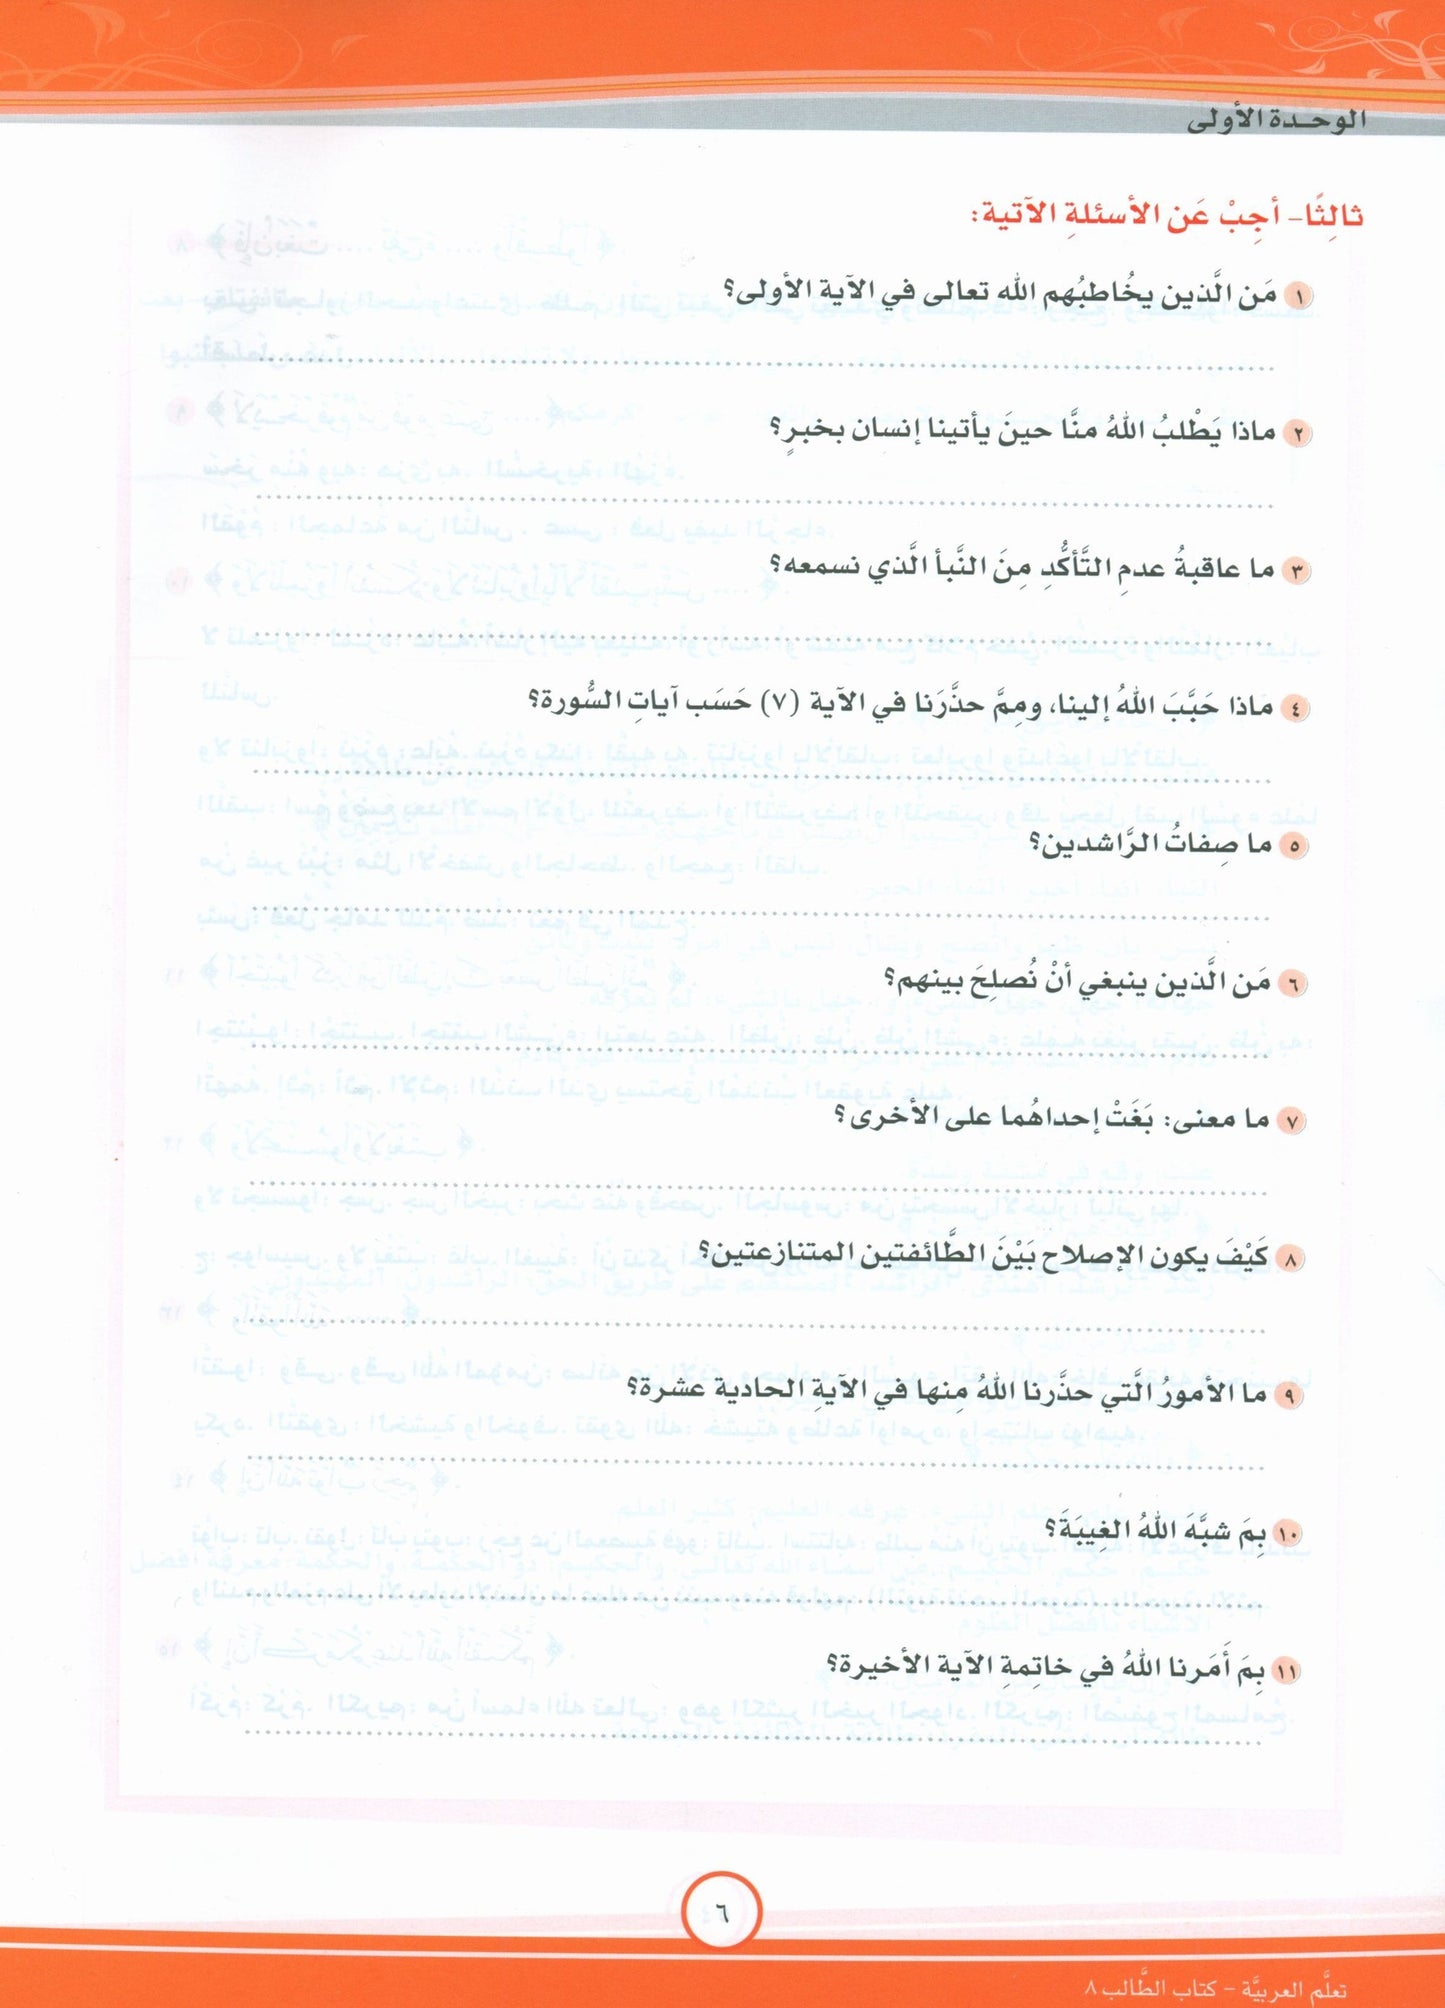 الوحدة الأولى
ثالِثًا- أجِبْ عَن الأسئلةِ الآتية:
١ مَن الَّذين يخُاطبُهم الله تعالى في الآية الأولى؟
٢ ماذا يَطْلبُ اللهُ منَّا حينَ يأتينا إنسان بخبرٍ؟
٣ ما عاقبةُ عدمِ التَّأكُّدِ مِنَ النَّبأ الَّذي نسمعه؟
٤ ماذا حَبَّبَ اللهُ إلينا، ومِمَّ حذَّرَنا في الآية (٧) حَسَب آياتِ السُّورة؟
٥ ما صِفاتُ الرَّاشدين؟
٦ مَن الَّذين ينبغي أنْ نُصلِحَ بينهم؟
٧ ما معنى: بَغَتْ إحداهُما على الأخرى؟
٨ كَيْفَ يكون الإصلاح بَيْنَ الطَّائفتين المتنازعتين؟
٩ ما الأمورُ الَّتي حذَّرنا اللهُ مِنها في الآيةِ الحادية عشرة؟
١٠ بِمَ شبَّه اللهُ الغِيبَةَ؟
١١ بِمَ أَمَرنا اللهُ في خاتِمةِ الآية الأخيرة؟
٦
تعلَّم العربيَّة - كتاب الطَّالب ٨